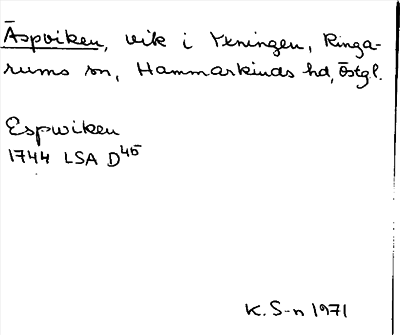 Äspviken, vik i Yxningen, Ringa-
rums sn, Hammarkinds hd, Östgl.
Espwiken
1744 LSA D45
K. S-n 1971